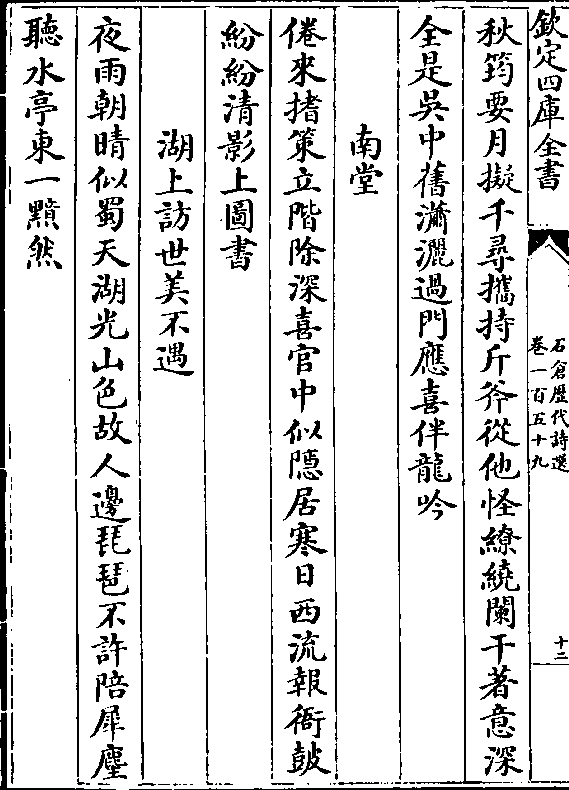 欽定四庫全書
石倉歷代詩選
卷一百五十九
十二
秋筠要月擬千尋攜持斤斧從他怪繚繞闌干著意深
全是吳中舊瀟灑過門應喜伴龍吟
南堂
倦來搘策立階除深喜官中似隱居寒日西流報衙鼓
紛紛清影上圖書
湖上訪世美不遇
夜雨朝晴似蜀天湖光山色故人邊琵琶不許陪犀麈
聽水亭東一黯然